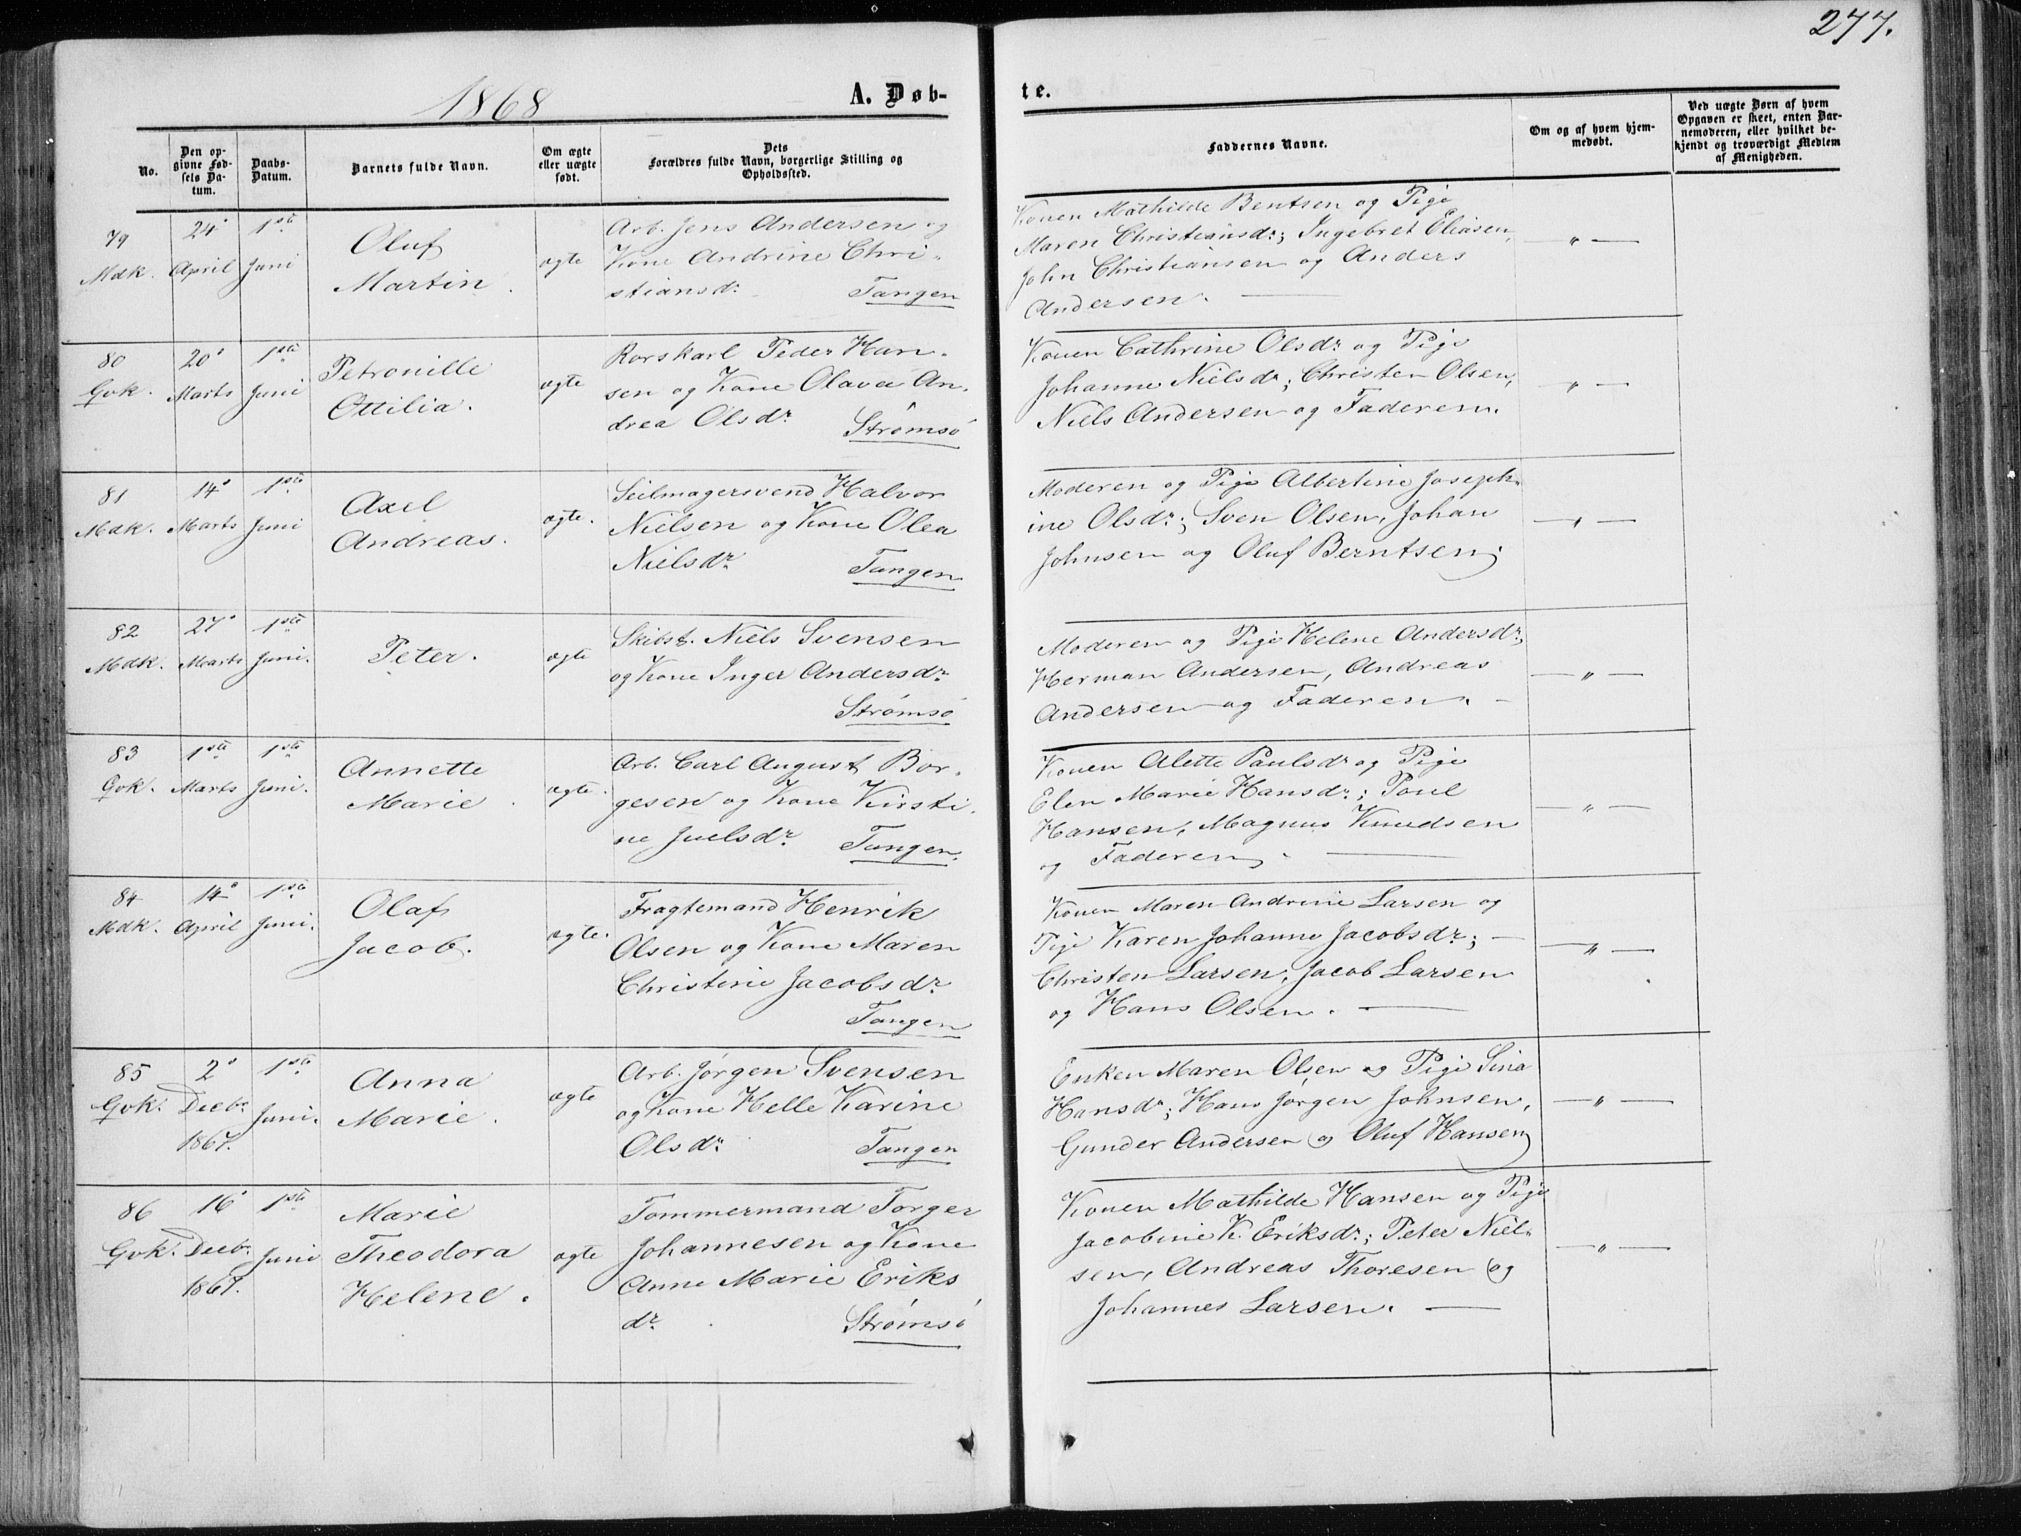 277.
1868
A. Døb-
te.
No.
Den op-
givne Fød-
sels Da-
tum.
Daabs-
Datum.
Barnets fulde Navn.
Om ægte
eller uægte
født.
Dets
Forældres fulde Navn, borgerlige Stilling og
Opholdssted.
Faddernes Navne.
Om og af hvem hjem-
medøbt.
Ved uægte Børn af hvem
Opgaven er skeet, enten Bar-
nemoderen, eller hvilket be-
kjendt og troværdigt Medlem
af Menigheden.
79
Mdk.
24'
April
1ste
Juni
Oluf
Martin.
ægte
Arb. Jens Andersen og
Kone Andrine Chri-
stiansdr. Tangen
Konen Mathilde Bentsen og Pige
Maren Christiansdr; Ingebret Eliasen,
John Christiansen og Anders
Andersen.
— " —
80
Gvk.
20'
Marts
1ste
Juni
Petronille
Ottilia.
ægte
Rorskarl Peder Han-
sen og Kone Olava An-
drea Olsdr Strømsö
Konen Cathrine Olsdr og Pige
Johanne Nielsdr; Christen Olsen,
Niels Andersen og Faderen.
— " —
81
Mdk.
14'
Marts
1ste
Juni
Axel
Andreas.
ægte.
Seilmagersvend Halvor
Nielsen og Kone Olea
Nielsdr Tangen
Moderen og Pige Albertine Joseph-
ine Olsdr; Sven Olsen, Johan
Johnsen og Oluf Berntsen.
— " —
82
Mdk.
27'
Marts
1ste
Juni.
Peter.
ægte
Skibst. Niels Svensen
og Kone Inger Andersdr
Strømsö
Moderen og Pige Helene Andersdr;
Herman Andersen, Andreas
Andersen og Faderen. -
— " —
83
Gvk.
1ste
Marts
1ste
Juni.
Annette
Marie.
ægte.
Arb. Carl August Bor-
gesen og Kone Kirsti-
ne Juelsdr Tangen.
Konen Alette Paulsdr og Pige
Elen Marie Hansdr; Poul
Hansen, Magnus Knudsen
og Faderen.
— " —
84
Mdk.
14'
April
1ste
Juni.
Olaf
Jacob.
ægte.
Fragtemand Henrik
Olsen og Kone Maren
Christine Jacobsdr
Tangen
Konen Maren Andrine Larsen og
Pige Karen Johanne Jacobsdr; -
Christen Larsen, Jacob Larsen
og Hans Olsen.
— " —
85
Gvk.
2'
Decbr.
1867.
1ste
Juni.
Anna
Marie.
ægte
Arb. Jørgen Svensen
og Kone Helle Karine
Olsdr Tangen
Enken Maren Olsen og Pige Sina
Hansdr; Hans Jørgen Johnsen,
Gunder Andersen og Oluf Hansen
— " —
86
Gvk.
16'
Decbr.
1867.
1ste
Juni
Marie
Theodora
Helene.
ægte
Tømmermand Torger
Johannesen og Kone
Anne Marie Eriks
dr. Strømsö
Konen Mathilde Hansen og Pige
Jacobine K. Eriksdr; Peter Niel-
sen, Andreas Thoresen og
Johannes Larsen.
— " —